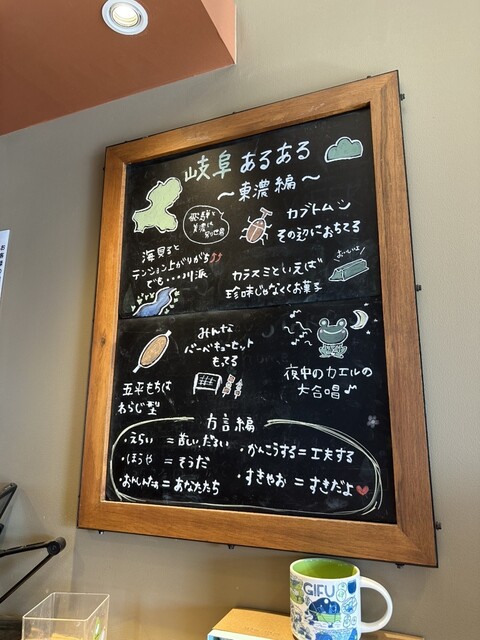 岐阜あるある
～東濃編～
飛騨と
美濃は
別世界
カブトムシ
その辺におちてる
海見ると
テンション上がりがち
でも・・・川派
おいしい!
カラスミといえば
珍味じゃなくてお菓子
みんな
バーベキューセット
もってる
五平もちは
わらじ型
夜中のカエルの
大合唱♪
方言編
・えらい = 苦しい、だるい
・ほうや = そうだ
・おんしんたぁ = あなたたち
・かんこうする = 工夫する
・すきやお = すきだよ
GIFU